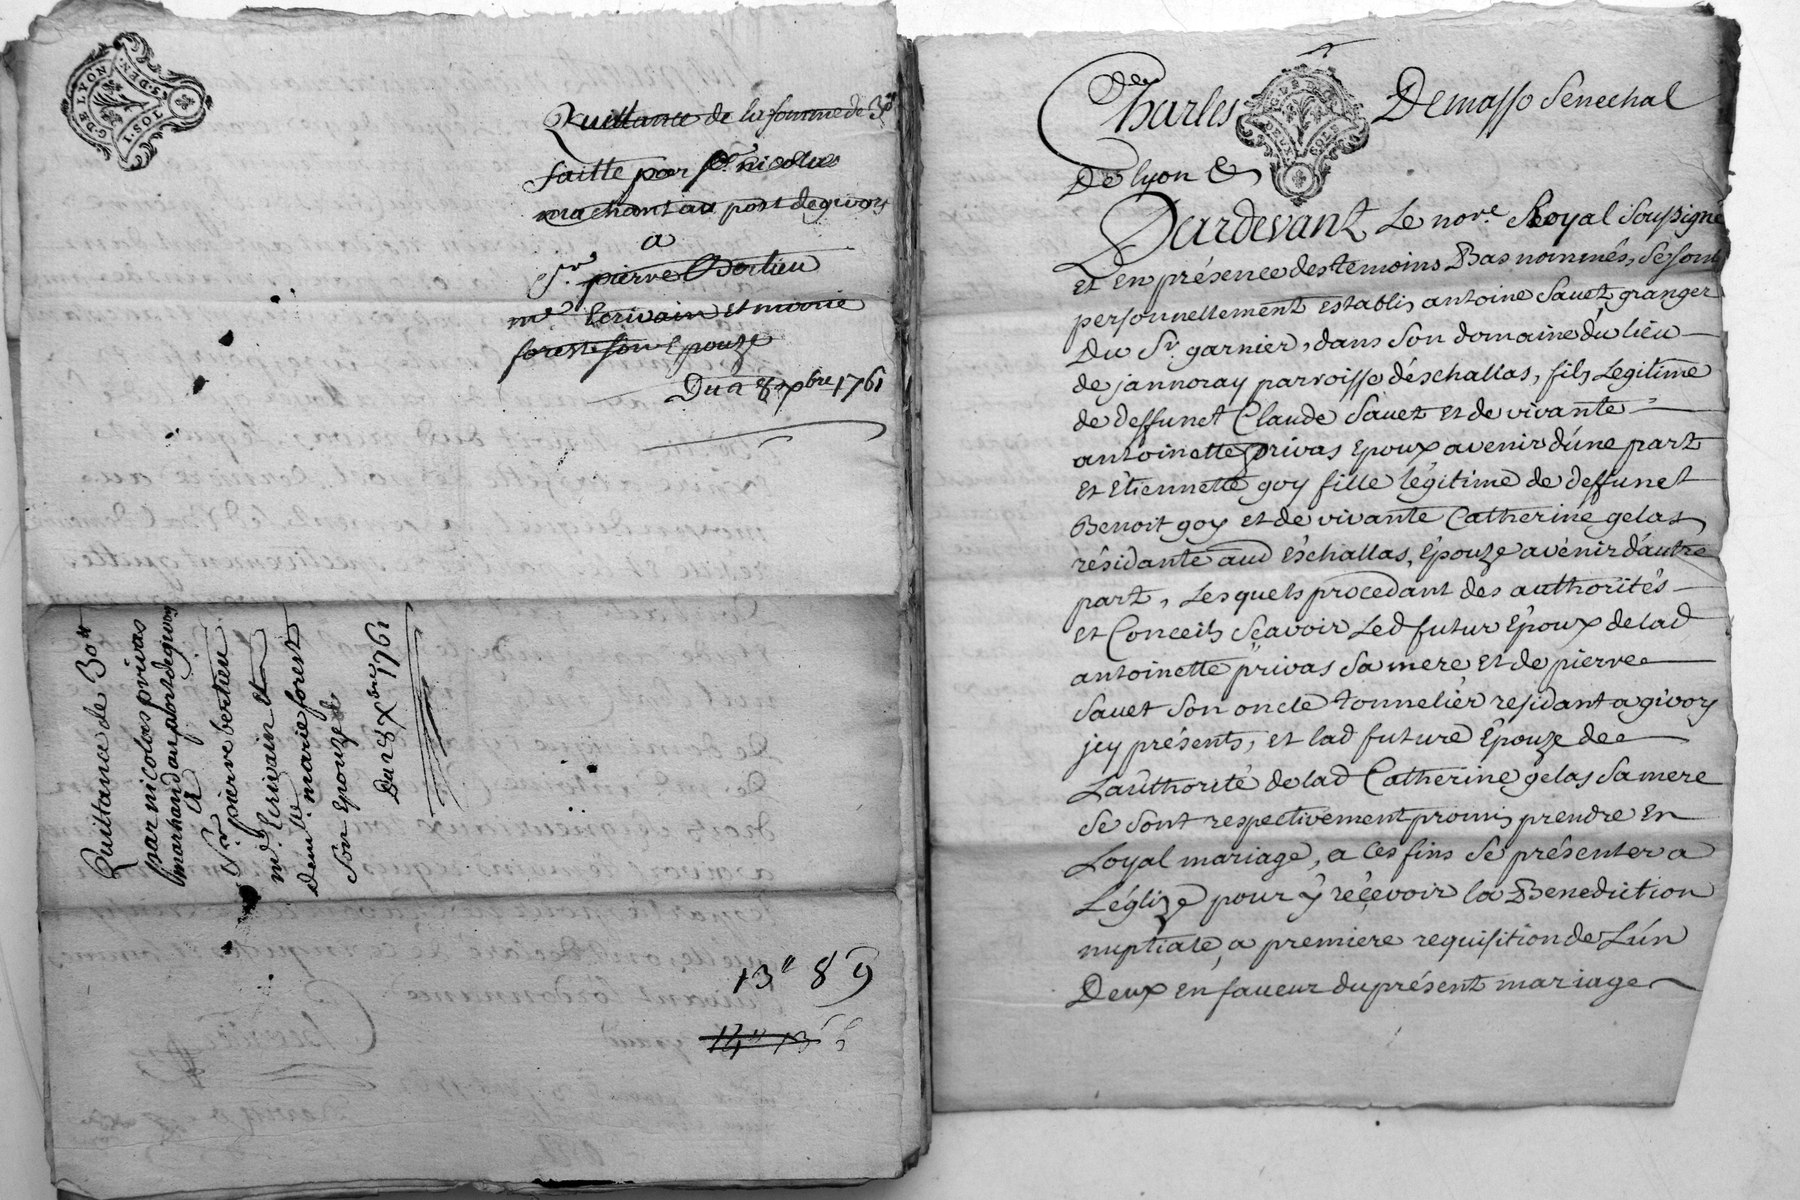 G. DE LYON
1. SOL. 5. DEN.
Quittance de la somme de 30"
faitte par Sr. nicolas
marchant au port de givors
a
Sr. pierre Bertieu
me Ecrivain et marie
forest son Epouze
Du 28 xbre 1761
Quittance de 30"
par nicolas privas
marhand au port de givors
a
Sr. pierre bertieu
me. Ecrivain et
demlle marie forest
son Epouze
Du 28 xbre 1761
13" 8 9
14" 13
Charles Demasso Senechal
De lyon &
Pardevant Le nore. Royal soussigné
et en présence des temoins Bas nommés, se sont
personnellement establis antoine Sauet granger
Du Sr. garnier, dans son domaine du lieu
de jannoray parroisse déschallas, fils Légitime
de deffunct Claude Sauet et de vivante
antoinette privas Epoux avenir d'une part
et Etiennette goy fille légitime de deffunct
Benoit goy et de vivante Catherine gelas
résidante aud Eschallas, Epouze avenir dáutre
part, Lesquels procedant des authorités
et Conceils scavoir Led futur Epoux de lad
antoinette privas sa mere et de pierre
Sauet son oncle tonnelier residant a givors
jcy présents, et lad future Epouze de
Láuthorité de lad Catherine gelas sa mere
se sont respectivement promis prendre En
Loyal mariage, a ces fins se présenter a
Léglize pour y recevoir la Benediction
nuptiale, a premiere requisition de Lún
Deux en faueur du présent mariage